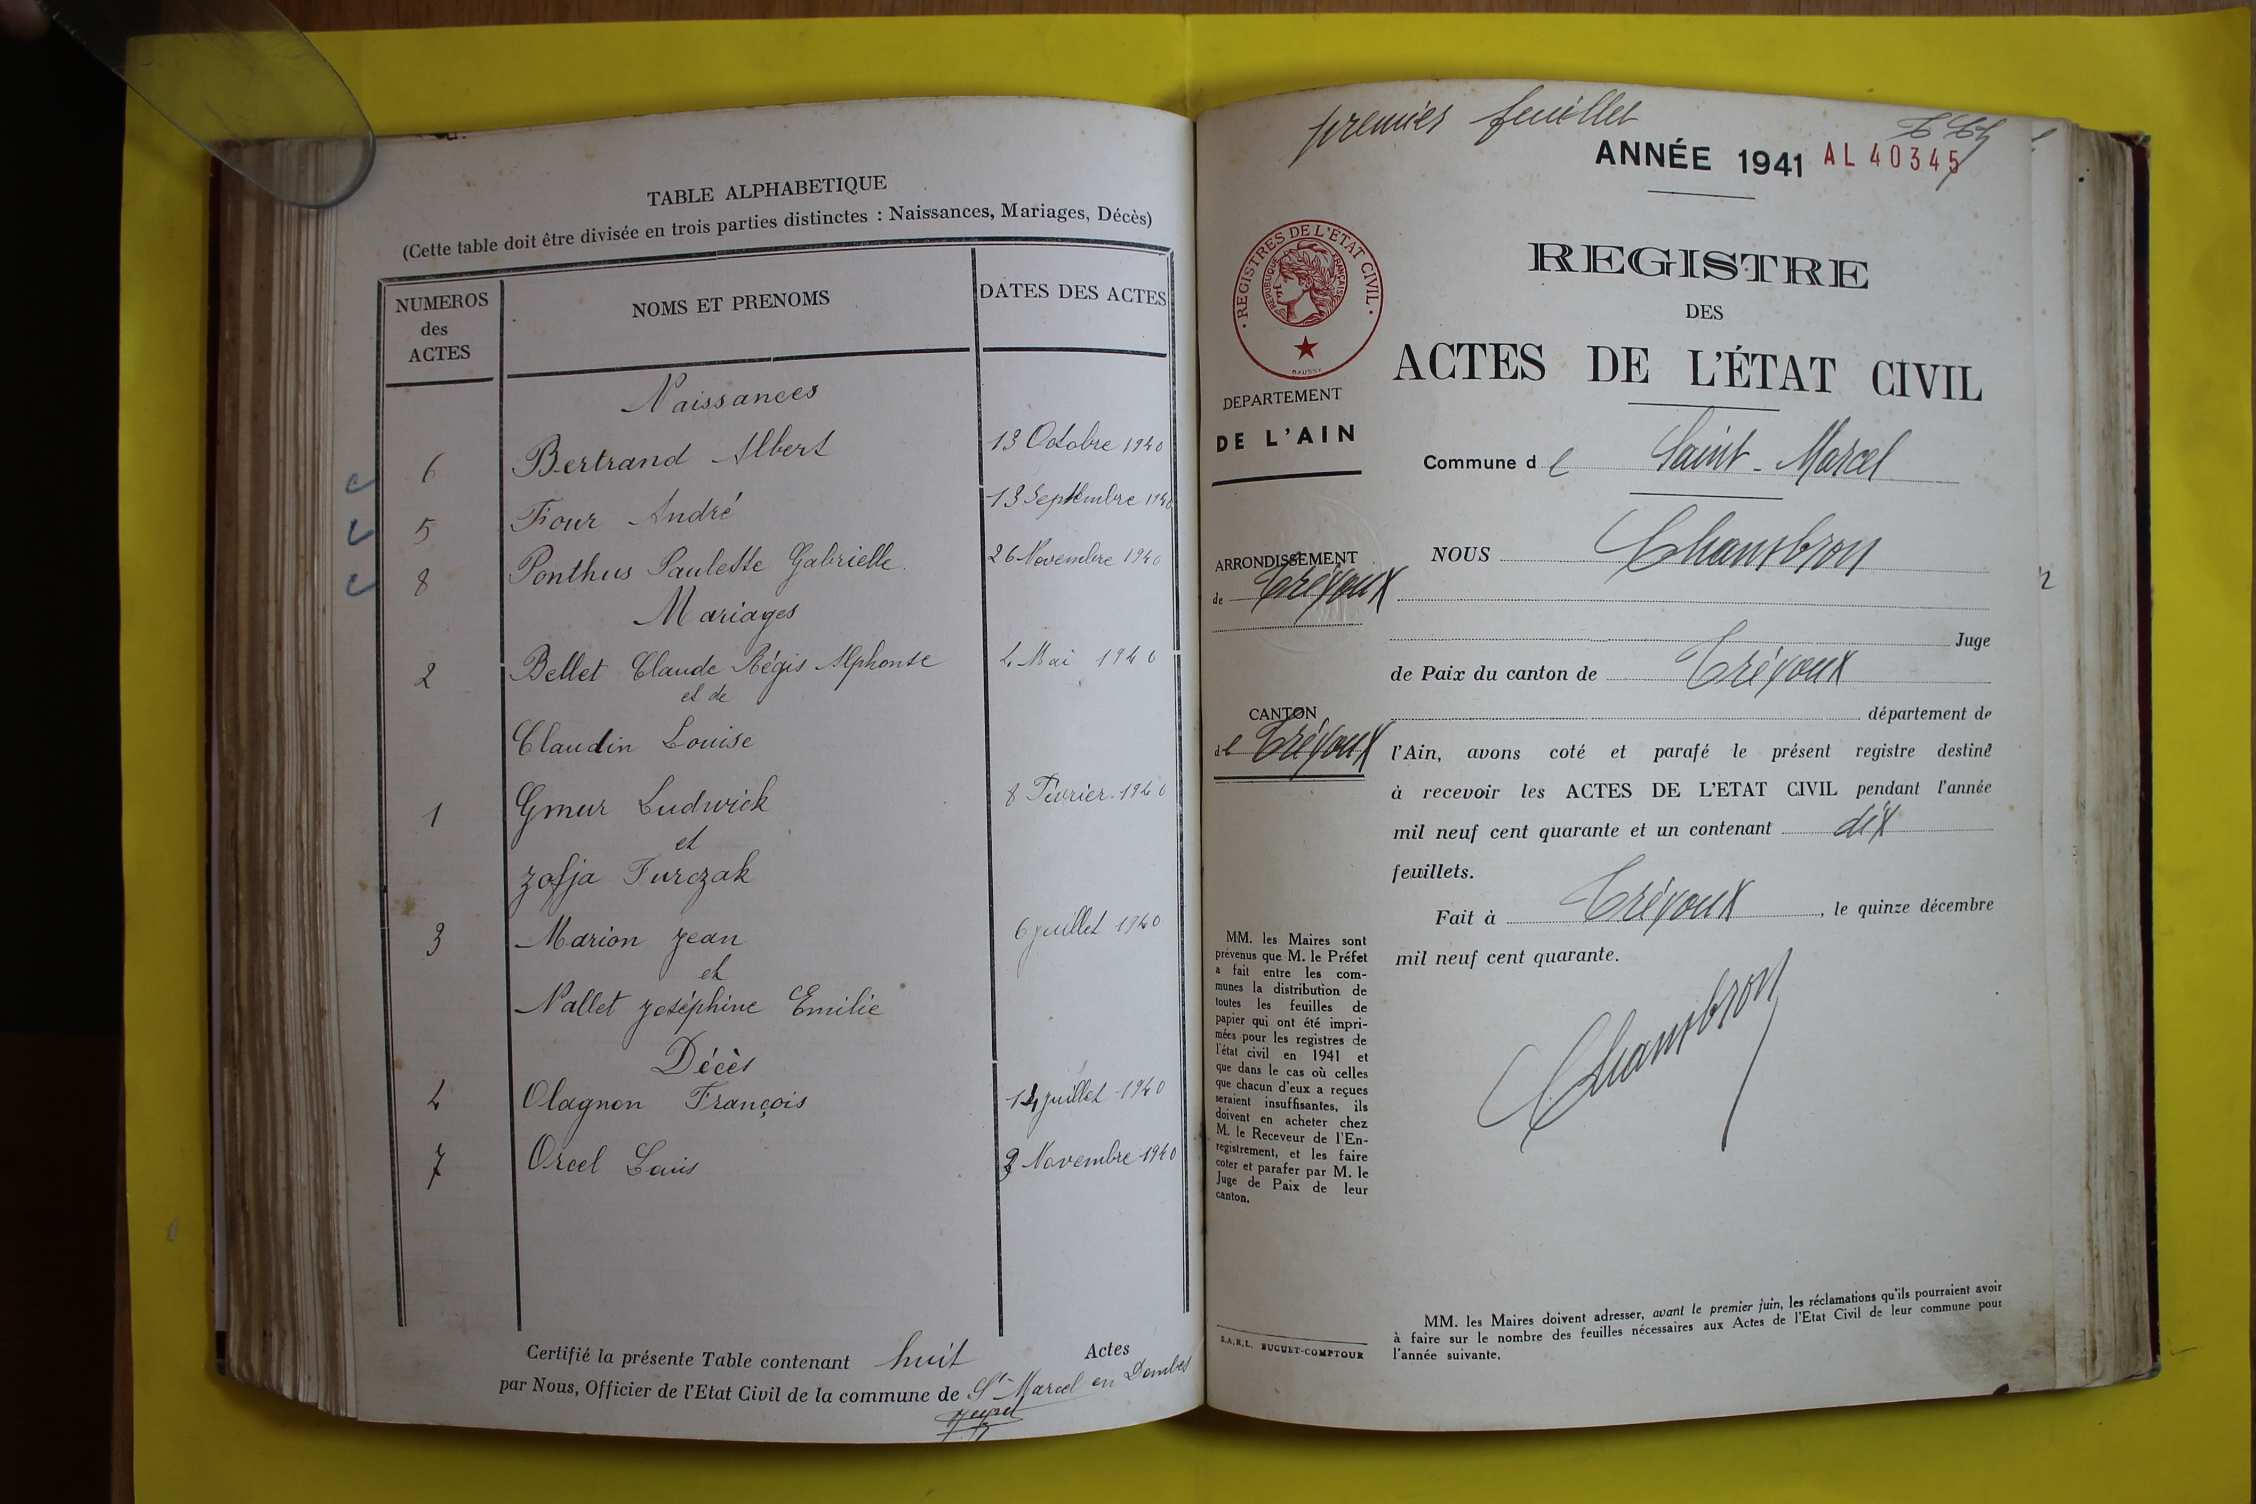 TABLE ALPHABETIQUE
(Cette table doit être divisée en trois parties distinctes : Naissances, Mariages, Décès)
NUMEROS des ACTES
NOMS ET PRENOMS
DATES DES ACTES
Naissances
6 Bertrand Albert 13 Octobre 1940
5 Four André 13 Septembre 1940
8 Ponthus Paulette Gabrielle 26 Novembre 1940
Mariages
2 Bellet Claude Régis Alphonse 4 Mai 1940
et de
Claudin Louise
1 Gmur Ludwick 8 Février 1940
et
Zofja Turczak
3 Marion Jean 6 juillet 1940
et
Nallet Joséphine Emilie
Décès
4 Olagnon François 14 juillet 1940
7 Orcel Louis Novembre 1940
Certifié la présente Table contenant huit Actes
par Nous, Officier de l'Etat Civil de la commune de St Marcel en Dombes
premier feuillet
ANNÉE 1941 AL 40345
REGISTRE
DES
ACTES DE L'ÉTAT CIVIL
· REGISTRES DE L'ETAT CIVIL ·
REPUBLIQUE FRANÇAISE
DEPARTEMENT
DE L'AIN
Commune de Saint-Marcel
ARRONDISSEMENT
de Trévoux
CANTON
de Trévoux
NOUS Chambron
Juge
de Paix du canton de Trévoux
département de
l'Ain, avons coté et parafé le présent registre destiné
à recevoir les ACTES DE L'ETAT CIVIL pendant l'année
mil neuf cent quarante et un contenant dix
feuillets.
Fait à Trévoux, le quinze décembre
mil neuf cent quarante.
Chambron
MM. les Maires sont
prévenus que M. le Préfet
a fait entre les com-
munes la distribution de
toutes les feuilles de
papier qui ont été impri-
mées pour les registres de
l'état civil en 1941 et
que dans le cas où celles
que chacun d'eux a reçues
seraient insuffisantes, ils
doivent en acheter chez
M. le Receveur de l'En-
registrement, et les faire
coter et parafer par M. le
Juge de Paix de leur
canton.
S.A.R.L. BUGUET-COMPTOUR
MM. les Maires doivent adresser, avant le premier juin, les réclamations qu'ils pourraient avoir
à faire sur le nombre des feuilles nécessaires aux Actes de l'Etat Civil de leur commune pour
l'année suivante.